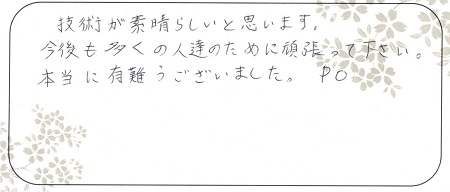 技術が素晴らしいと思います,
今後も多くの人達のために頑張って下さい。
本当に有難うございました。 PO